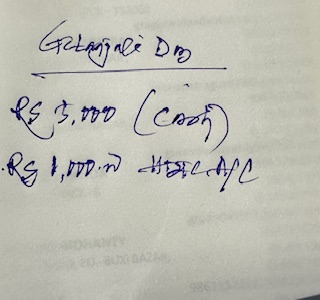 Gitanjali Das
Rs 5,000 (Cash)
Rs 1,000.00 HDFC A/C